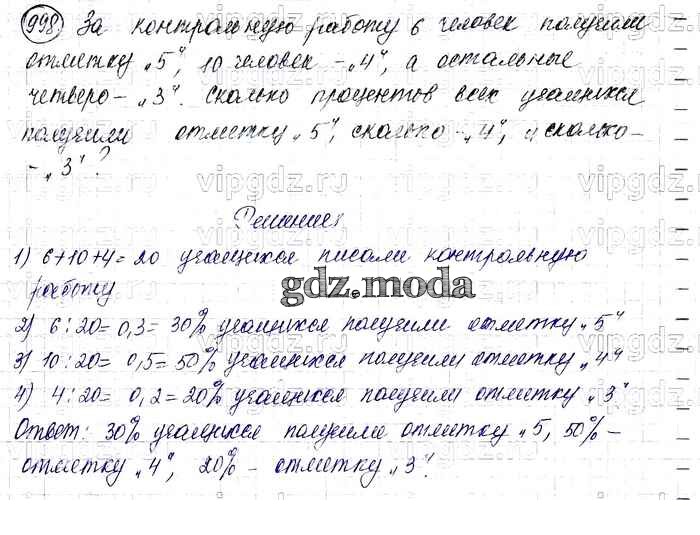 998. За контрольную работу 6 человек получили
отметку „5", 10 человек - „4", а остальные
четверо - „3". Сколько процентов всех учащихся
получили отметку „5", сколько - „4", и сколько-
- „3"?
Решение:
1) 6+10+4=20 учащихся писали контрольную
работу
gdz.moda
2) 6:20= 0,3= 30% учащихся получили отметку „5"
3) 10:20= 0,5= 50% учащихся получили отметку „4"
4) 4:20= 0,2= 20% учащихся получили отметку „3"
Ответ: 30% учащихся получили отметку „5, 50% -
отметку „4", 20% - отметку „3".
vipgdz.ru